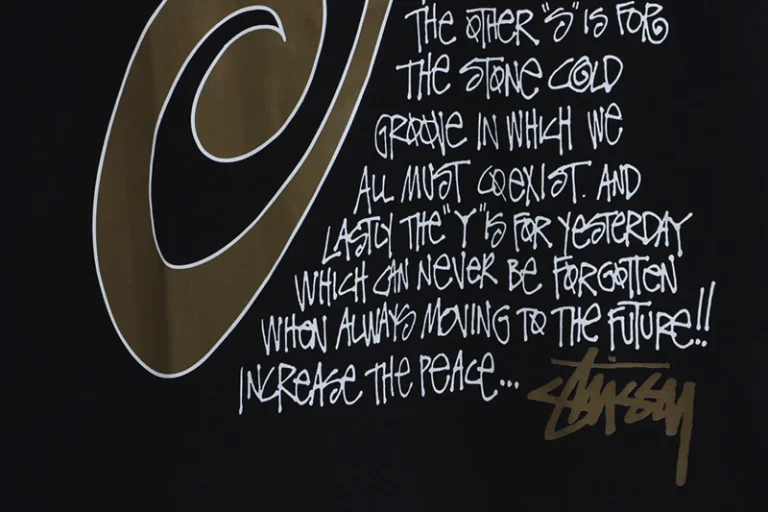 THE OTHER "S" IS FOR
THE STONE COLD
GROOVE IN WHICH WE
ALL MUST COEXIST. AND
LASTLY THE "Y" IS FOR YESTERDAY
WHICH CAN NEVER BE FORGOTTEN
WHEN ALWAYS MOVING TO THE FUTURE!!
INCREASE THE PEACE...
Stüssy